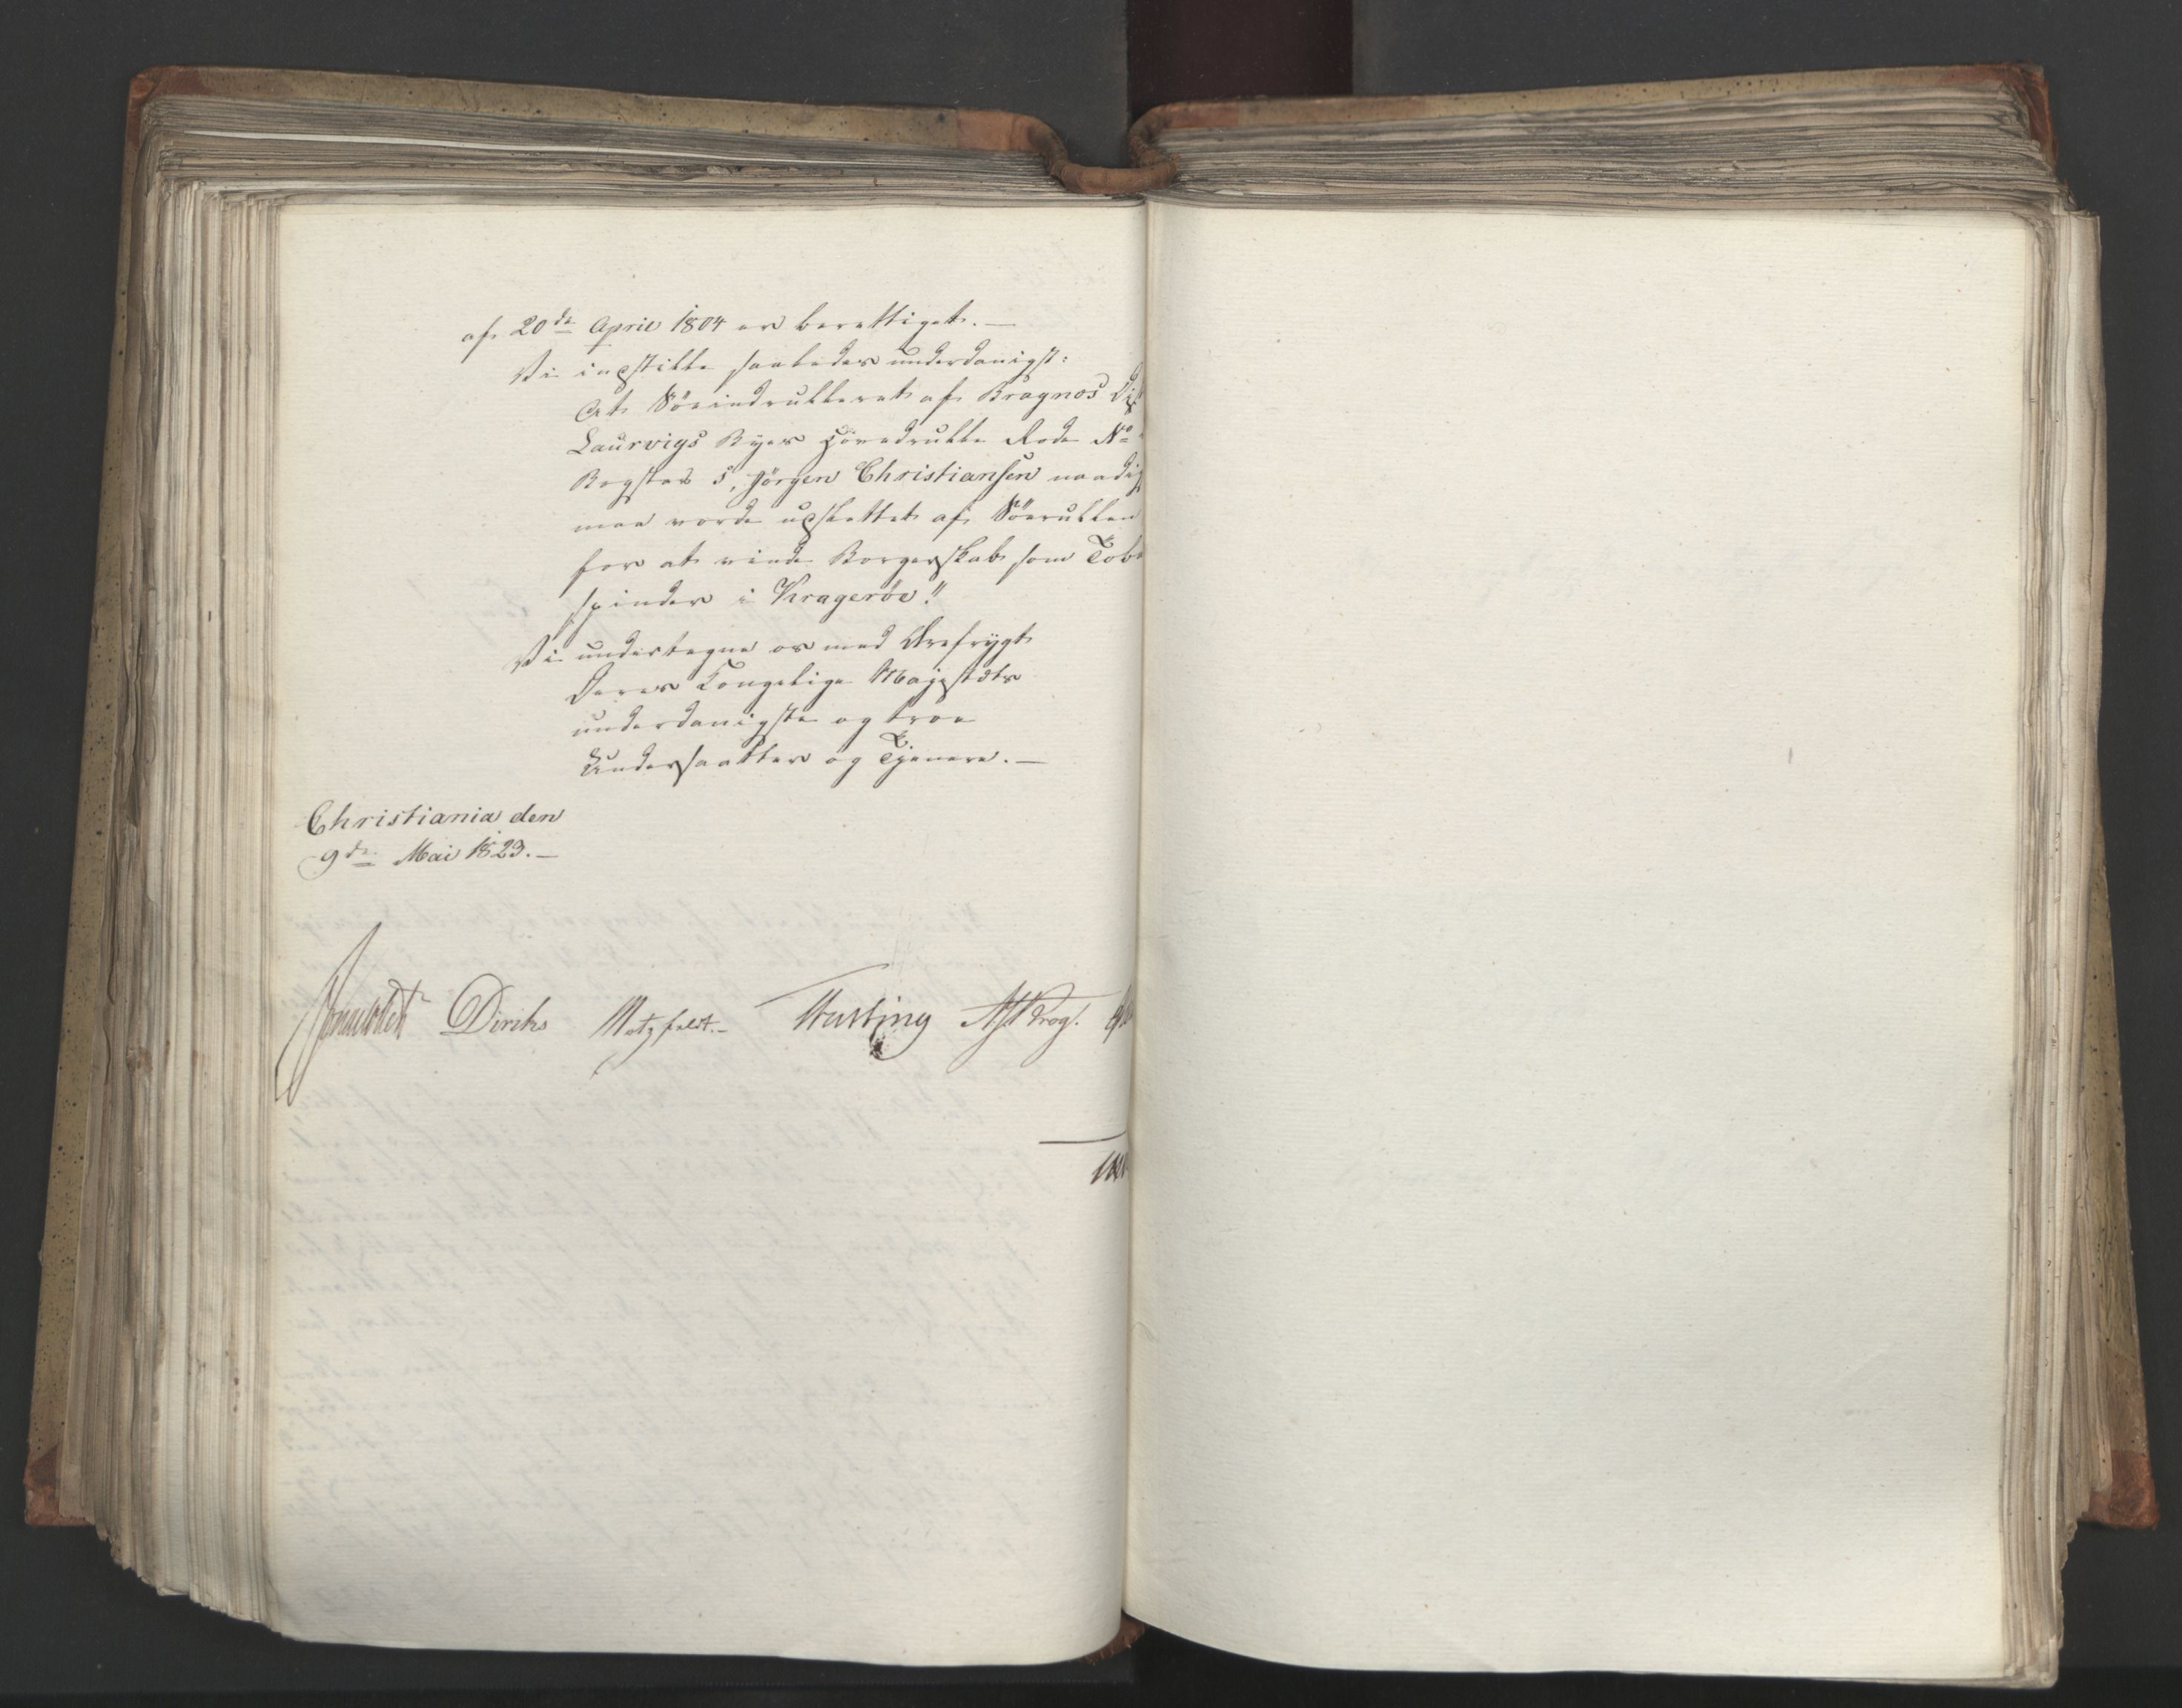 af 20de April 1804 er berettiget. —
Vi indstille saaledes underdanigst:
At Söeindrulleret af Bragnæs Di
Laurvigs Byes Hovedrulle Rode No
Bogstav S, Jörgen Christiansen naadig
maa vorde udslettet af Söerullen
for at vinde Borgerskab som Tob
spinder i Krageröe."
Vi undertegne os med Ærefrygt
Deres Kongelige Majestæts
underdanigste og troe
Undersaatter og Tjenere. —
Christiania den
9de Mai 1823. —
Sommerhielm Diriks Motzfeldt. Fasting Krog.